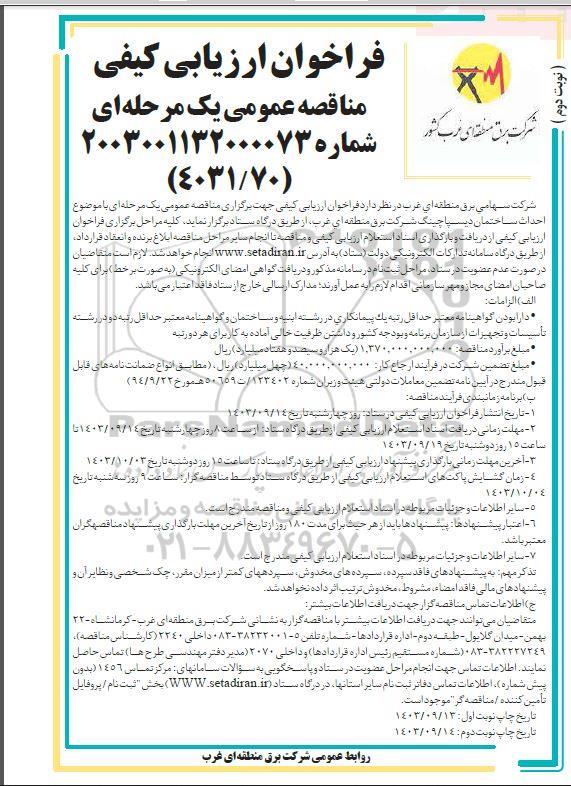 ( نوبت دوم )
شرکت برق منطقه‌ای غرب کشور
فراخوان ارزیابی کیفی
مناقصه عمومی یک مرحله‌ای
شماره ۲۰۰۳۰۰۱۱۳۲۰۰۰۰۷۳
(۴۰۳۱/۷۰)
شرکت سهامي برق منطقه‌اي غرب در نظر دارد فراخوان ارزیابی کیفی جهت برگزاری مناقصه عمومی یک مرحله‌ای با موضوع
احداث ساختمان دیسپاچینگ شرکت برق منطقه ای غرب، از طریق درگاه ستاد برگزار نماید، کلیه مراحل برگزاری فراخوان
ارزیابی کیفی از دریافت و بارگذاری اسناد استعلام ارزیابی کیفی و مناقصه تا انجام سایر مراحل مناقصه ابلاغ برنده و انعقاد قرارداد،
از طریق درگاه سامانه تدارکات الکترونیکی دولت (ستاد) به آدرس www.setadiran.ir انجام خواهد شد. لازم است متقاضیان
در صورت عدم عضویت در ستاد، مراحل ثبت نام در سامانه مذکور و دریافت گواهی امضای الکترونیکی (به صورت بر خط) برای کلیه
صاحبان امضای مجاز و مهر سازمانی اقدام لازم را به عمل آورند؛ مدارک ارسالی خارج از ستاد فاقد اعتبار می‌باشد.
الف) الزامات:
• دارا بودن گواهینامه معتبر حداقل رتبه یک پیمانکاري در رشته ابنیه و ساختمان و گواهینامه معتبر حداقل رتبه دو در رشته
تأسیسات و تجهیزات از سازمان برنامه و بودجه کشور و داشتن ظرفیت خالی آماده به کار برای هر دو رتبه
• مبلغ برآورد مناقصه: ۱,۳۷۰,۰۰۰,۰۰۰,۰۰۰ (یک هزار و سیصد و هفتاد میلیارد) ریال
• مبلغ تضمین شرکت در فرآیند ارجاع کار: ۴۰,۰۰۰,۰۰۰,۰۰۰ (چهل میلیارد) ریال، (مطابق انواع ضمانت نامه‌های قابل
قبول مندرج در آیین نامه تضمین معاملات دولتی هیئت وزیران شماره ۱۲۳۴۰۲/ت۵۰۶۵۹هـ مورخ ۹۴/۹/۲۲)
ب) برنامه زمانبندی فرآیند مناقصه:
۱-تاریخ انتشار فراخوان ارزیابی کیفی در ستاد: روز چهارشنبه تاریخ ۱۴۰۳/۰۹/۱۴
۲- مهلت زمانی دریافت اسناد استعلام ارزیابی کیفی از طریق درگاه ستاد: از ساعت ۸ روز چهارشنبه تاریخ ۱۴۰۳/۰۹/۱۴ تا
ساعت ۱۵ روز دوشنبه تاریخ ۱۴۰۳/۰۹/۱۹
۳-آخرین مهلت زمانی بارگذاری پیشنهاد ارزیابی کیفی از طریق درگاه ستاد: تا ساعت ۱۵ روز دوشنبه تاریخ ۱۴۰۳/۱۰/۰۳
۴- زمان گشایش پاکت‌های استعلام ارزیابی کیفی از طریق درگاه ستاد توسط مناقصه گزار: ساعت ۹ روز سه شنبه تاریخ
۱۴۰۳/۱۰/۰۴
۵- سایر اطلاعات و جزئیات مربوطه در اسناد استعلام ارزیابی کیفی و مناقصه مندرج است.
۶-اعتبار پیشنهادها: پیشنهادها باید از هر حیث برای مدت ۱۸۰ روز از تاریخ آخرین مهلت بارگذاری پیشنهاد مناقصهگران
معتبر باشد.
۷-سایر اطلاعات و جزئیات مربوطه در اسناد استعلام ارزیابی کیفی مندرج است.
تذکر مهم: به پیشنهادهای فاقد سپرده، سپرده های مخدوش، سپردههای کمتر از میزان مقرر، چک شخصی و نظایر آن و
پیشنهادهای مالی فاقد امضاء، مشروط، مخدوش ترتیب اثر داده نخواهد شد.
ج) اطلاعات تماس مناقصه گزار جهت دریافت اطلاعات بیشتر:
متقاضیان می‌توانند جهت دریافت اطلاعات بیشتر با مناقصه گزار به نشانی شرکت برق منطقه ای غرب-کرمانشاه-۲۲
بهمن-میدان گلایول-طبقه دوم-اداره قراردادها-شماره تلفن ۵-۰۸۳-۳۸۲۳۲۰۰۱ داخلی ۲۲۴۰ (کارشناس مناقصه)،
۰۸۳-۳۸۲۲۷۲۴۹ (شماره مستقیم رئیس اداره قراردادها) و داخلی ۲۰۷۰ (مدیر دفتر مهندسی طرح ها) تماس حاصل
نمایند. اطلاعات تماس جهت انجام مراحل عضویت در ستاد و پاسخگویی به سؤالات سامانهای: مرکز تماس ۱۴۵۶ (بدون
پیش شماره)، اطلاعات تماس دفاتر ثبت نام سایر استانها، در درگاه ستاد (WWW.setadiran.ir) بخش "ثبت نام / پروفایل
تأمین کننده / مناقصه گر" موجود است.
تاریخ چاپ نوبت اول: ۱۴۰۳/۰۹/۱۳
تاریخ چاپ نوبت دوم: ۱۴۰۳/۰۹/۱۴
روابط عمومی شرکت برق منطقه‌ای غرب
پایگاه اطلاع رسانی مناقصه و مزایده
۰۲۱-۸۸۳۴۹۶۷۰-۵